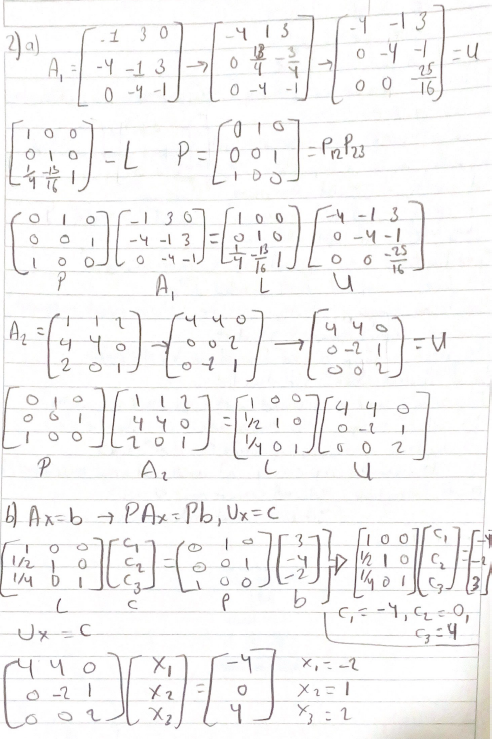 2) a) A₁ = [-1 3 0; -4 -1 3; 0 -4 -1] → [-4 -1 3; 0 13/4 -3/4; 0 -4 -1] → [-4 -1 3; 0 -4 -1; 0 0 -25/16] = U
[1 0 0; 0 1 0; 1/4 -13/16 1] = L P = [0 1 0; 0 0 1; 1 0 0] = P₁₂P₂₃
[0 1 0; 0 0 1; 1 0 0] [-1 3 0; -4 -1 3; 0 -4 -1] = [1 0 0; 0 1 0; 1/4 -13/16 1] [-4 -1 3; 0 -4 -1; 0 0 -25/16]
P A₁ L U
A₂ = [1 1 2; 4 4 0; 2 0 1] → [4 4 0; 0 0 2; 0 -2 1] → [4 4 0; 0 -2 1; 0 0 2] = U
[0 1 0; 0 0 1; 1 0 0] [1 1 2; 4 4 0; 2 0 1] = [1 0 0; 1/2 1 0; 1/4 0 1] [4 4 0; 0 -2 1; 0 0 2]
P A₂ L U
b) Ax=b → PAx=Pb, Ux=c
[1 0 0; 1/2 1 0; 1/4 0 1] [c₁; c₂; c₃] = [0 1 0; 0 0 1; 1 0 0] [3; -4; -2] ⇒ [1 0 0; 1/2 1 0; 1/4 0 1] [c₁; c₂; c₃] = [-4; -2; 3]
L c P b
c₁=-4, c₂=0,
c₃=4
Ux=c
[4 4 0; 0 -2 1; 0 0 2] [x₁; x₂; x₃] = [-4; 0; 4]
x₁=-2
x₂=1
x₃=2